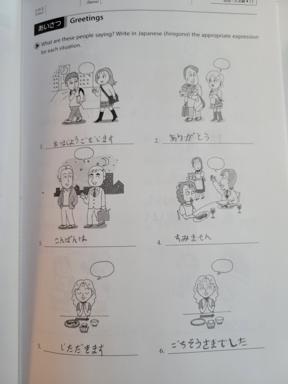 あいさつ Greetings
What are these people saying? Write in Japanese (hiragana) the appropriate expression
for each situation.
1. おはようございます
2. ありがとう
3. こんばんは
4. すみません
5. いただきます
6. ごちそうさまでした